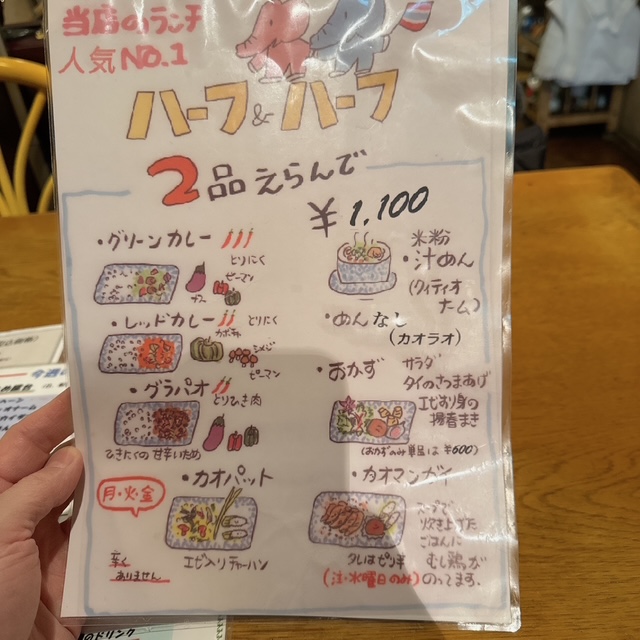 当店のランチ
人気NO.1
ハーフ&ハーフ
2品えらんで
¥1.100
・グリーンカレー
とりにく
ナス
ピーマン
・レッドカレー
とりにく
カボチャ
しめじ
ピーマン
・グラパオ
とりひき肉
ひきにくの甘辛いため
月・火・金
・カオパット
辛く
ありません
エビ入りチャーハン
米粉
・汁めん
(クイティオ
ナーム)
・めんなし
(カオラオ)
・おかず
サラダ
タイのさつまあげ
エビすり身の
揚春まき
(おかずのみ単品は¥600)
・カオマンガイ
スープで
炊き上げた
ごはんに
むし鶏が
のってます。
タレはピリ辛
(注・水曜日のみ)